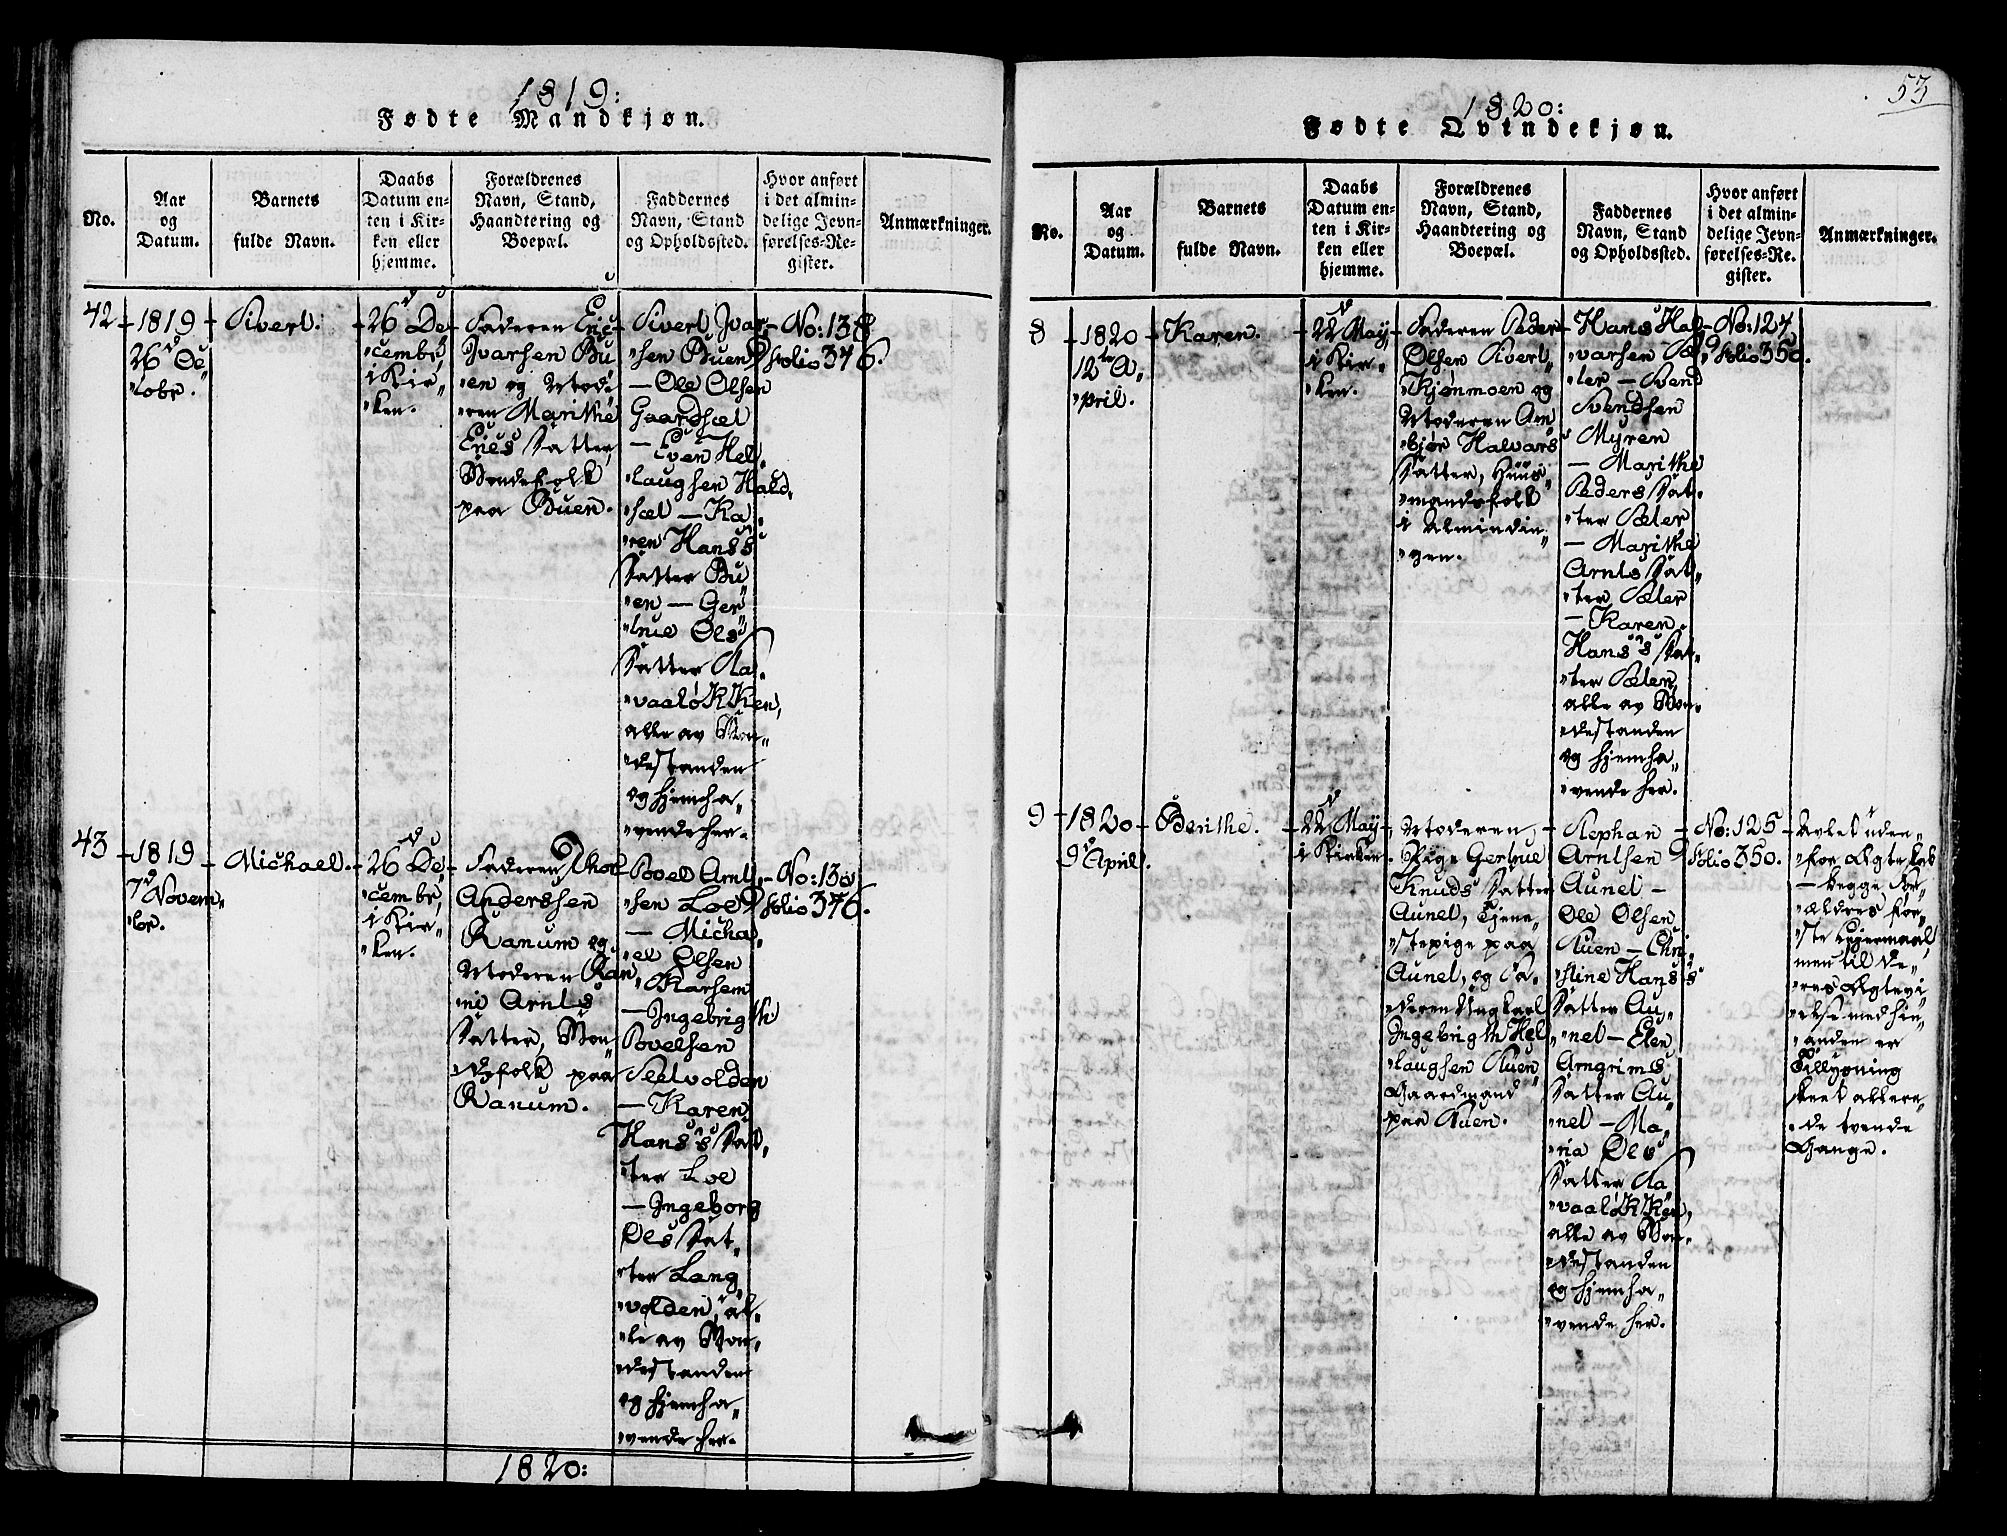 1819:
Fødte Mandkjøn.
No.
Aar
og
Datum.
Barnets
fulde Navn.
Daabs
Datum en-
ten i Kir-
ken eller
hjemme.
Forældrenes
Navn, Stand,
Haandtering og
Boepæl.
Faddernes
Navn, Stand
og Opholdssted.
Hvor anført
i det almin-
delige Jevn-
førelses-Re-
gister.
Anmærkninger.
42
1819
26d Oc„
„tobr.
Sivert.
26d De„
„cembr,
i Kir„
„ken.
Faderen Eric
Ivarsen Bu„
„en og Mode„
„ren Marithe
Erics Datter,
Bondefolk
paa Buen.
Sivert Ivar„
„sen Buen
— Ole Olsen
Gaardsæl
— Even Hel„
„laugsen Hald„
„sæl — Ka„
„ren Hans's
Datter Bu„
„en — Ger„
„true Ols
Datter Aa„
„vaaløkken,
alle av Bon„
„destanden
og hjemha„
„vende her.
No: 138
folio 376.
43
1819
7d Novem„
„br.
Michael.
26d De„
„cembr,
i Kir„
„ken.
Faderen Thor
Anderssen
Ranum og
Moderen Ran„
„ni Arnts
Datter, Bon„
„defolk paa
Ranum.
Povel Arnt„
„sen Loe
— Micha„
„el Olsen
Karsem
— Ingebrigth
Povelsen
Seelvolden
— Karen
Hans's Dat„
„ter Loe
— Ingeborg
Ols Dat„
„ter Lang„
„volden, al„
„le av Bon„
„destanden
og hjemha„
„vende her.
No: 130
folio 376.
1820:
53
1820:
Fødte Qvindekjøn.
No.
Aar
og
Datum.
Barnets
fulde Navn.
Daabs
Datum en-
ten i Kir-
ken eller
hjemme.
Forældrenes
Navn, Stand,
Haandtering og
Boepæl.
Faddernes
Navn, Stand
og Opholdssted.
Hvor anført
i det almin-
delige Jevn-
førelses-Re-
gister.
Anmærkninger.
8
1820
12te A„
„pril.
Karen.
22d May,
i Kir„
„ken.
Faderen Peder
Olsen Sivert„
„Kjønmoen og
Moderen Am„
„bjør Halvars
Datter, Huus„
„mandsfolk
i Almindin„
„gen.
Hans Hal„
„varsen Sæ„
„ler — Svend
Svendsen
Myren
— Marithe
Peders Dat„
„ter Sæler
— Marithe
Arnts Dat„
„ter Sæler
— Karen
Hans's Dat„
„ter Sæler,
alle av Bon„
„destanden
og hjemha„
„vende her.
No: 124
folio 350.
9
1820
9d April.
Benthe.
22d May
i Kirken.
Moderen,
Pige Gertrue
Knuds Datter
Aunel, Tjene„
„stepige paa
Aunel, og Fa„
„deren Ungkarl
Ingebrigth Hel„
„laugsen Ruen,
Gaardmand
paa Ruen.
Stephan
Arntsen
Aunel —
Ole Olsen
Ruen — Chri„
„stine Hans's
Datter Au„
„nel — Elen
Arngrims
Datter Au„
„nel — Ma„
„ria Ols
Datter Aa„
„vaaløkken,
alle av Bon„
„destanden
og hjemha„
„vende her.
No: 125
folio 350.
Avlet uden„
„for Ægteskab
— begge For„
„ældres før„
„ste Lejermaal
men til de„
„res Ægtevi„
„else med hin„
„anden er
Tillysning
skeet allere„
„de tvende
Gange.